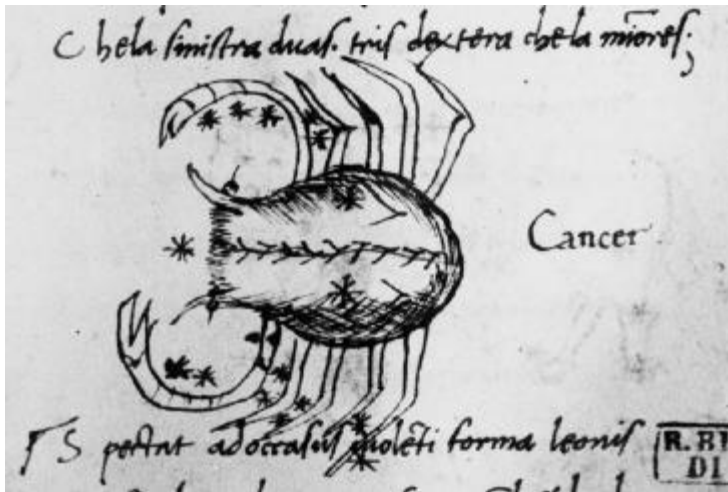 Chela sinistra duas. tris dextera chela mīores;
Cancer
S pectat ad occasus violēti forma leonis
R. BI
DI